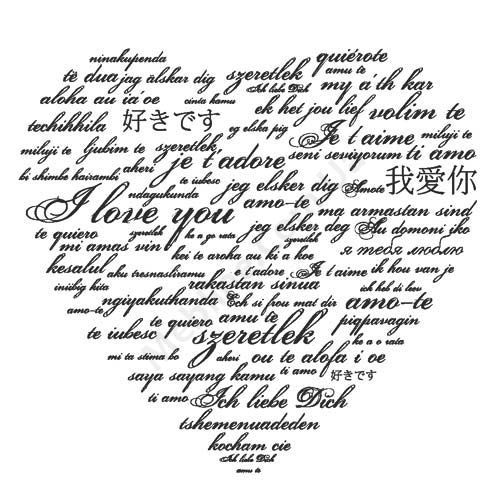 ninakupenda quiérote
të dua jag älskar dig szeretlek amu te
Ich liebe Dich my á th kar
aloha au iá oe cinta kamu ek het jou lief volim te
techihhila 好きです eg elska þig Je t'aime miluji te
miluji te ljubim te szeretlek seni seviyorum ti amo
bi shimbe hairambi aheri je t'adore
te iubesc jeg elsker dig Amote 我愛你
ndagukunda amo-te
I love you ma armastan sind
te quiero szeretlek ke a go rata jeg elsker deg Au domoni iko
mi amas vin szeretlek я тебя люблю
kei te aroha au ki a koe
kesalul aku tresnasliramu t'adore Je t'aime ik hou van je
rakastan sinua
iniibig kita ich heb di leev
ngiyakuthanda Ech si frou mat dir amo-te
amo-te te quiero amu te piqpavagin
te iubesc szeretlek ke a o rata
mi ta stima bo aheri ou te alofa i oe
saya sayang kamu ti amo 好きです
ti amo Ich liebe Dich
tshemenuadeden
kocham cie
Ich liebe Dich
amu te